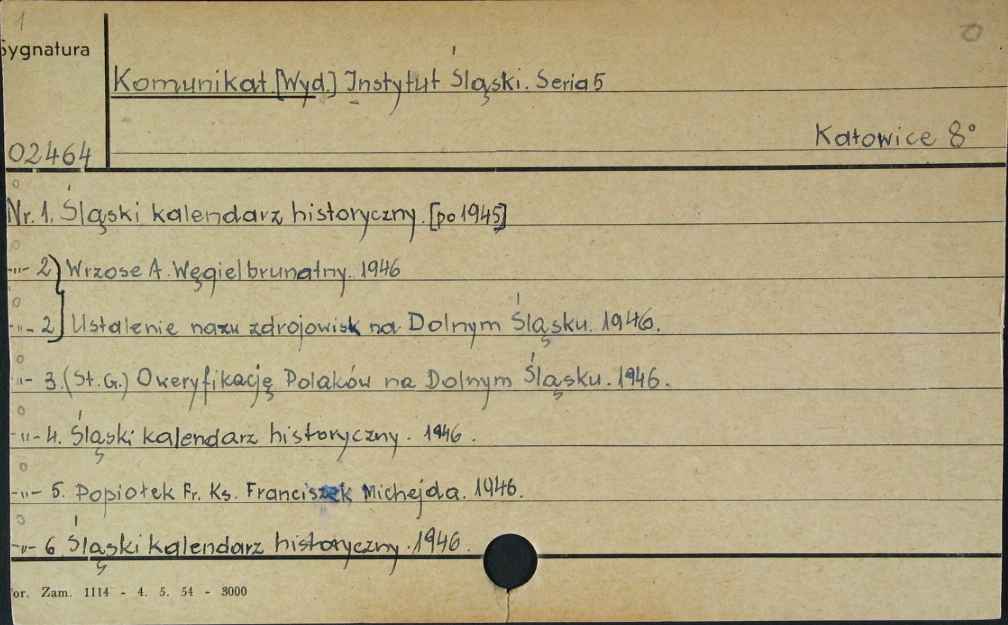 1
Sygnatura
Komunikat [Wyd.] Instytut Śląski. Seria 5
Katowice 8°
02464
Nr. 1. Śląski kalendarz historyczny. [po 1945]
-"- 2 Wrzosek A. Węgiel brunatny. 1946
-"- 2 Ustalenie nazw zdrojowisk na Dolnym Śląsku. 1946.
-"- 3. (St. G.) O weryfikację Polaków na Dolnym Śląsku. 1946.
-"- 4. Śląski kalendarz historyczny. 1946.
-"- 5. Popiołek Fr. Ks. Franciszek Michejda. 1946.
-"- 6 Śląski kalendarz historyczny. 1946.
or. Zam. 1114 - 4. 5. 54 - 3000